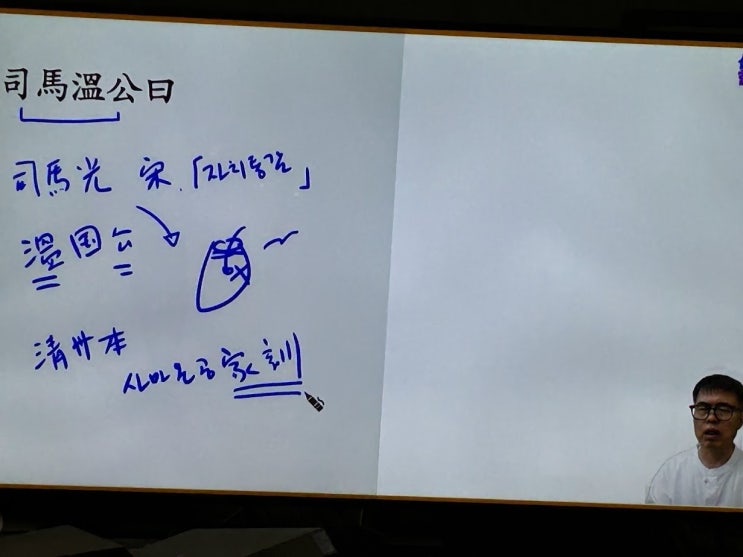 司馬溫公曰
司馬光 宋.「자치통감」
溫国公
清州本
사마온공 家訓